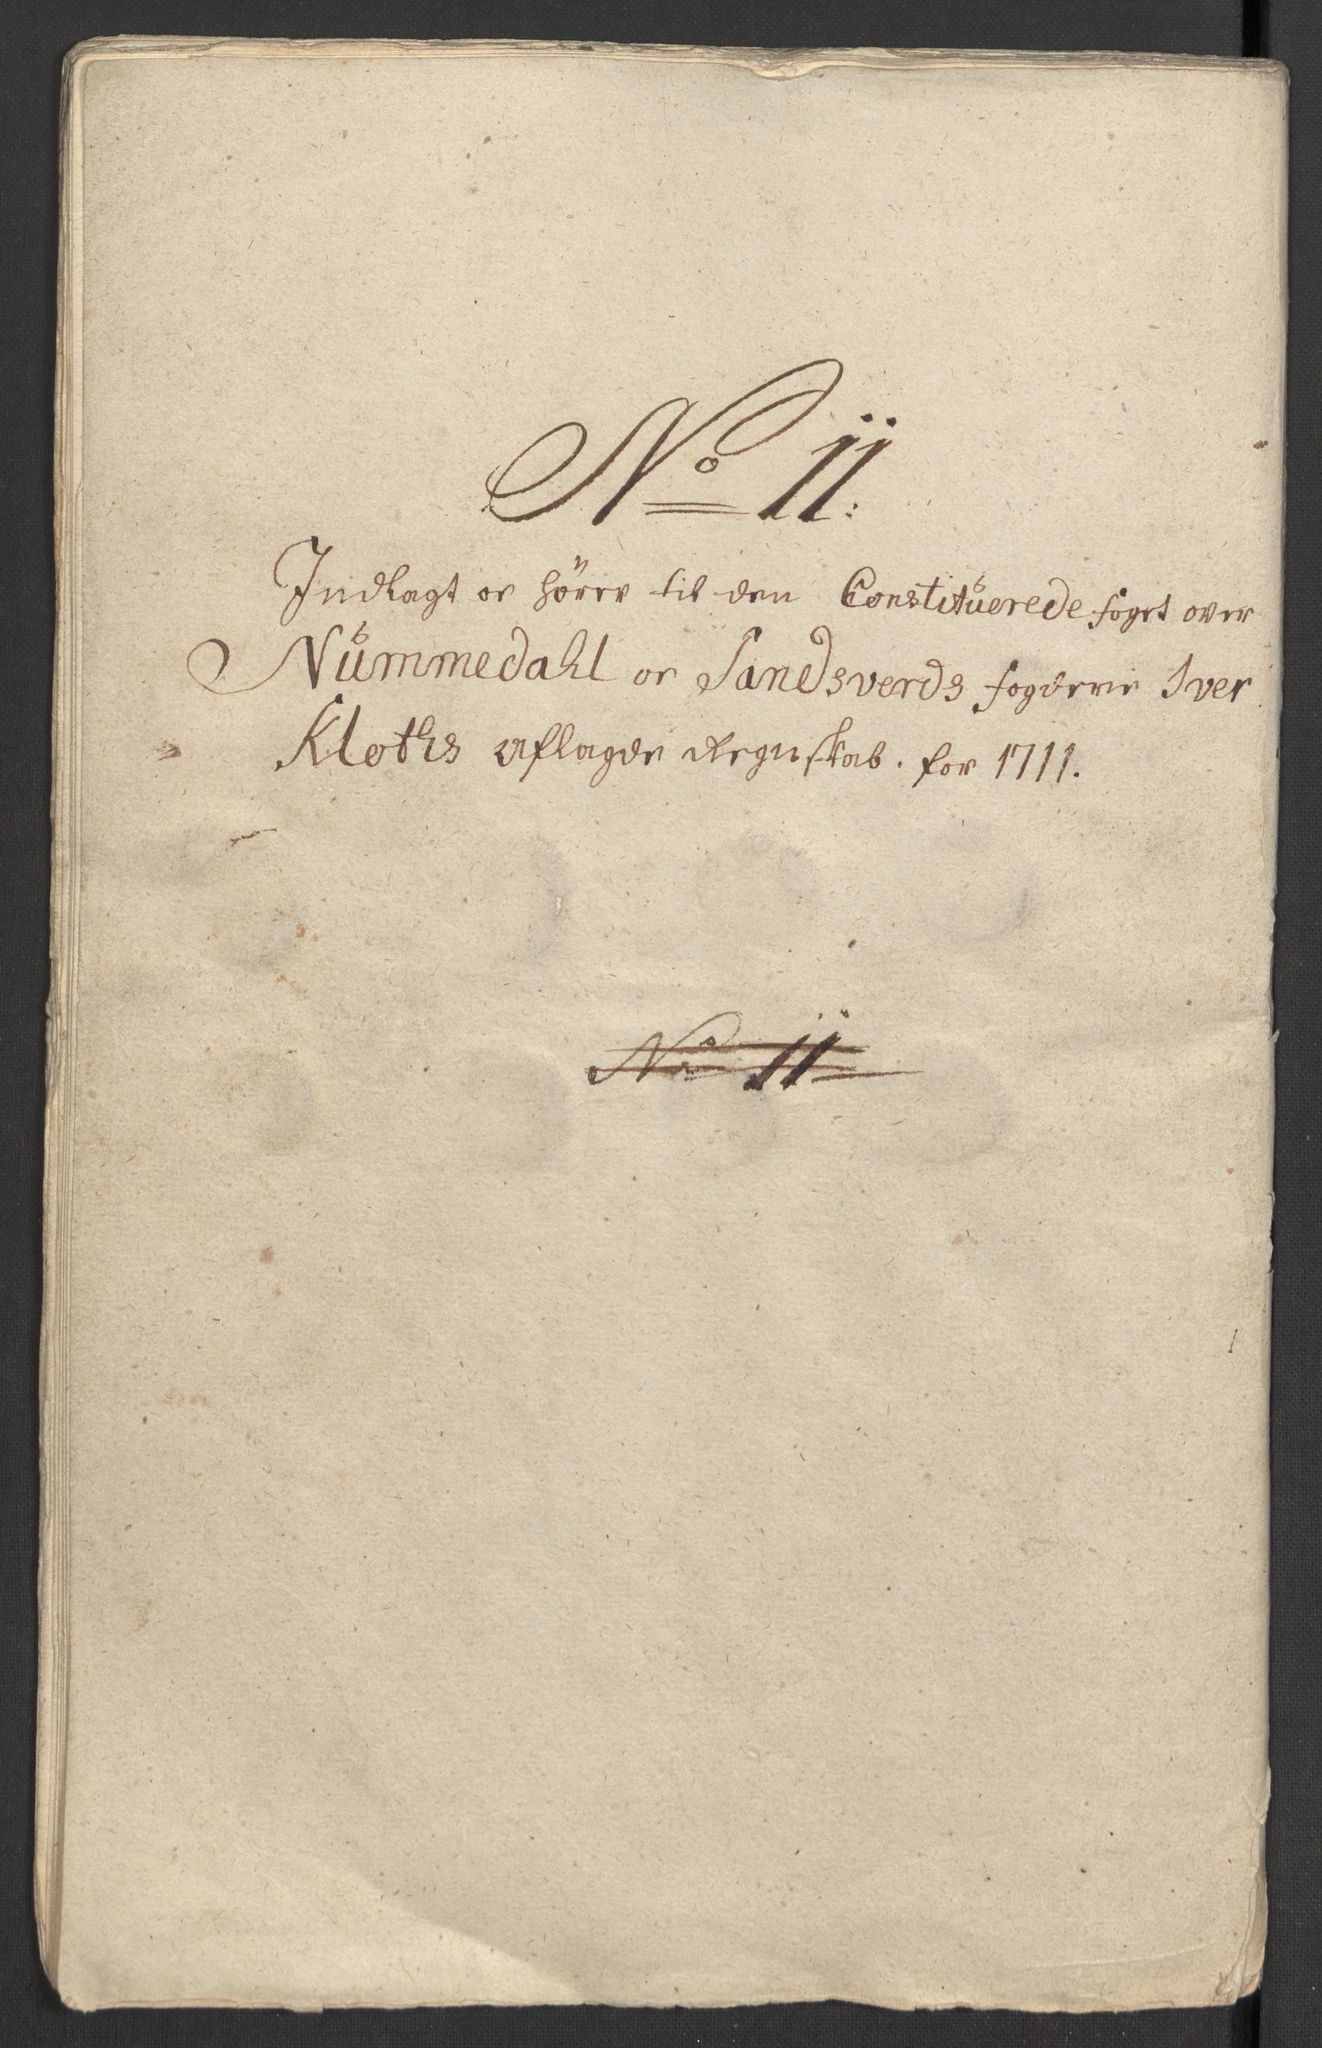 No 11:
Indlagt oc hörer til den Constitüerede foget over
Nümmedahl oc Sandsverds fogderie Iver
Kloths aflagde Regnskab. for 1711.
No 11